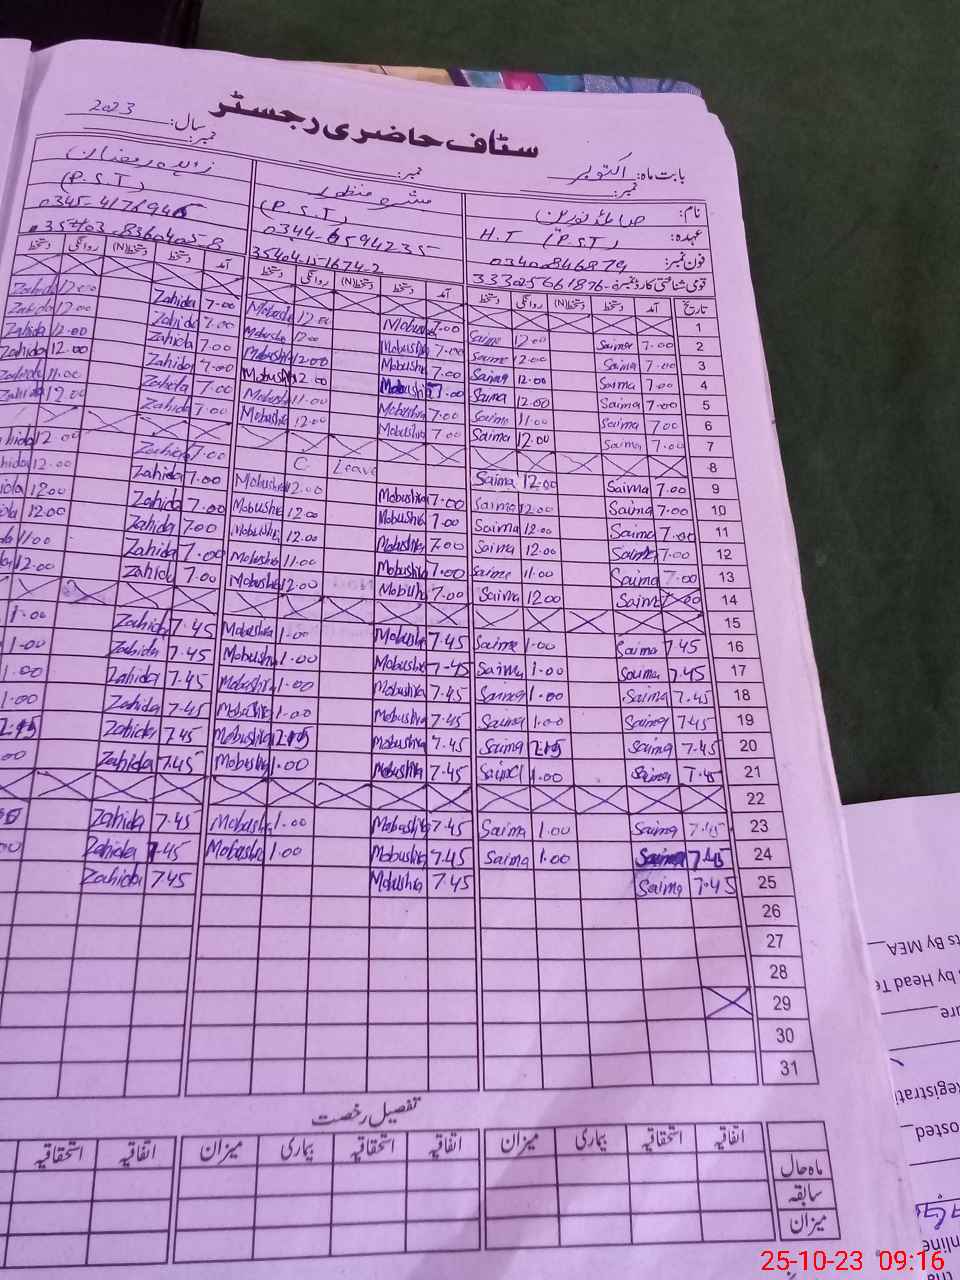 سٹاف حاضری رجسٹر
بابت ماہ: اکتوبر سال: 2023
نمبر: نمبر: نمبر:
نام: صائمہ نورین مبشرہ منظور زاہدہ رمضان
عہدہ: H.T (P.S.T) (P.S.T) (P.S.T)
فون نمبر: 03400846879 0344-65942355 0345-4176946
قومی شناختی کارڈ نمبر
تاریخ آمد دستخط دستخط(N) روانگی دستخط آمد دستخط دستخط(N) روانگی دستخط آمد دستخط دستخط(N) روانگی دستخط
1
2 7.00 Saima 12.00 Saima 7.00 Mobushra 12.00 Mobushra 7.00 Zahida 12.00 Zahida
3 7.00 Saima 12.00 Saima 7.00 Mobushra 12.00 Mobushra 7.00 Zahida 12.00 Zahida
4 7.00 Saima 12.00 Saima 7.00 Mobushra 12.00 Mobushra 7.00 Zahida 12.00 Zahida
5 7.00 Saima 12.00 Saima 7.00 Mobushra 12.00 Mobushra 7.00 Zahida 12.00 Zahida
6 7.00 Saima 11.00 Saima 7.00 Mobushra 11.00 Mobushra 7.00 Zahida 11.00 Zahida
7 7.00 Saima 12.00 Saima 7.00 Mobushra 12.00 Mobushra 7.00 Zahida 12.00 Zahida
8
9 7.00 Saima 12.00 Saima C. Leave 7.00 Zahida 12.00
10 7.00 Saima 12.00 Saima 7.00 Mobushra 12.00 Mobushra 7.00 Zahida 12.00
11 7.00 Saima 12.00 Saima 7.00 Mobushra 12.00 Mobushra 7.00 Zahida 12.00
12 7.00 Saima 12.00 Saima 7.00 Mobushra 12.00 Mobushra 7.00 Zahida 12.00
13 7.00 Saima 11.00 Saima 7.00 Mobushra 11.00 Mobushra 7.00 Zahida 11.00
14 7.00 Saima 12.00 Saima 7.00 Mobushra 12.00 Mobushra 7.00 Zahida 12.00
15
16 7.45 Saima 1.00 Saima 7.45 Mobushra 1.00 Mobushra 7.45 Zahida 1.00
17 7.45 Saima 1.00 Saima 7.45 Mobushra 1.00 Mobushra 7.45 Zahida 1.00
18 7.45 Saima 1.00 Saima 7.45 Mobushra 1.00 Mobushra 7.45 Zahida 1.00
19 7.45 Saima 1.00 Saima 7.45 Mobushra 1.00 Mobushra 7.45 Zahida 1.00
20 7.45 Saima 12.15 Saima 7.45 Mobushra 12.15 Mobushra 7.45 Zahida
21 7.45 Saima 1.00 Saima 7.45 Mobushra 1.00 Mobushra 7.45 Zahida
22
23 7.45 Saima 1.00 Saima 7.45 Mobushra 1.00 Mobushra 7.45 Zahida
24 7.45 Saima 1.00 Saima 7.45 Mobushra 1.00 Mobushra 7.45 Zahida
25 7.45 Saima 7.45 Mobushra 7.45 Zahida
26
27
28
29
30
31
تفصیل رخصت
اتفاقیہ استحقاقیہ بیماری میزان اتفاقیہ استحقاقیہ بیماری میزان اتفاقیہ استحقاقیہ
ماہ حال
سابقہ
میزان
ts By MEA
by Head Te
osted
25-10-23 09:16